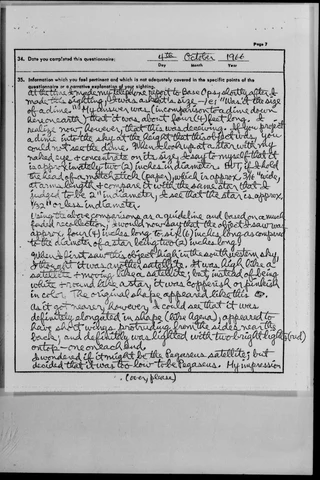 Page 7
34. Date you completed this questionnaire: 4th October 1966
Day Month Year
35. Information which you feel pertinent and which is not adequately covered in the specific points of the
questionnaire or a narrative explanation of your sighting.
At the time I made my telephone report to Base Ops shortly after I
made this sighting, I was asked its size — i.e.; "Was it the size
of a dime." My answer was (in comparison to a dime down
here on earth) that it was about four (4) feet long. I
realize now, however, that this was deceiving. If you project
a dime into the sky at the height that this object was, you
could not see the dime. When I look up at a star with my
naked eye & concentrate on its size, I say to myself that it
is approximately two (2) inches in diameter. But, if I hold
the head of a match stick (paper) which is approx 3/16" wide,
at arms length & compare it with the same star that I
judged to be 2" in diameter, I see that the star is approx
1/32" or less in diameter.
Using the above comparisons as a guideline and based on a much
faded recollection, I would now say that the object I saw was
approx four (4) inches long to six (6) inches long as compared
to the diameter of a star being two (2) inches long.
When I first saw this object high in the southwestern sky,
I thought it was another satellite. It was high like a
satellite & moving like a satellite; but, instead of being
white & round like a star, it was copperish or pinkish
in color. The original shape appeared like this
As it got nearer, however, I could see that it was
definitely elongated in shape (like Agena), appeared to
have short wings protruding from the sides near the
back, and definitely was lighted with two bright lights (red)
on top — one on each end.
I wondered if it might be the Pegaseus satellite; but
decided that it was too low to be Pegaseus. My impression
(over please)